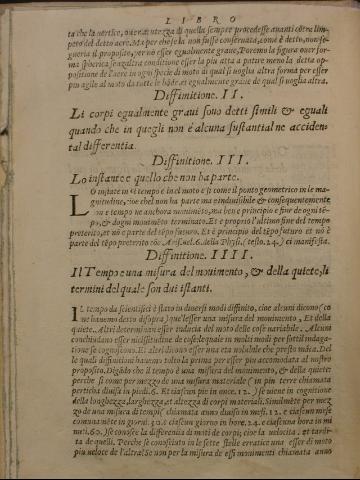 LIBRO
ta che la vertice, over acutezza di quella sempre procedesse avanti contra l'im-
peto del detto aere. Ma per che se la non fusse conservata, come è detto, non se-
gueria il proposito, per no esser egualmente grave. Poremo la figura over for-
ma spherica senz altra conditione esser la piu atta a patire meno la detta op-
positione de l'aere in ogni specie di moto di qual si voglia altra forma per esser
piu agile al moto da tutte le bande, et egualmente grave de qual si voglia altra.
Diffinitione. II.
Li corpi egualmente gravi sono detti simili & eguali
quando che in quegli non è alcuna sustantial ne acciden-
tal differentia.
Diffinitione. III.
Lo instante e quello che non ha parte.
LO instate in el tempo e in el moto e si come il ponto geometrico in le ma-
gnitudine, cioe chel non ha parte ma e indivisibile & consequentemente
non e tempo ne anchora movimēto, ma ben e principio e fine de ogni tē-
pō, & dogni movimēto terminato. Et e proprio l'ultimo fine del tempo
preterito, et nō e parte del tēpo futuro. Et è principio del tēpo futuro et nō è
parte del tēpo preterito cōe Arist. nel. 6. della Phisi. (testo. 24.) ci manifesta.
Diffinitione. IIII.
Il Tempo e una misura del movimento, & della quiete, li
termini del quale son dui istanti.
IL tempo da scientifici è stato in diversi modi diffinito, cioe alcuni dicono (co
me havemo detto di sopra) quel'esser una misura del movimento, Et della
quiete. Altri determinan esser inducia del moto delle cose variabile. Alcuni
conchiudano esser vicissitudine de cose lequale in molti modi per sottil indaga-
tione se cognoscono. Et altri dicono esser una eta volubile che presto māca. Del
le quali diffinitioni havemo tolto la prima per esser piu accomodata al nostro
proposito. Digādo che il tempo è una misura del movimento, & della quiete:
perche si come per mezzo de una misura materiale (in piu terre chiamata
pertica) divisa in piedi. 6. Et ciascun pie in once. 12.) se viene in cognitione
della longhezza, larghezza, et altezza di corpi materiali. Similmēte per mez
zo de una misura di tempi (chiamata anno divisa in mesi. 12. e ciascun mese
comunamēte in giorni. 30. e ciascun giorno in hore. 24. e ciascuna hora in mi
nuti. 60.) se conosce la differentia di moti de corpi; cioe la velocita, et tardi-
ta de quelli. Perche se conosciuto in le sette stelle erratice una esser di moto
piu veloce de l'altra: Se non per la misura de essi movimenti chiamata anno